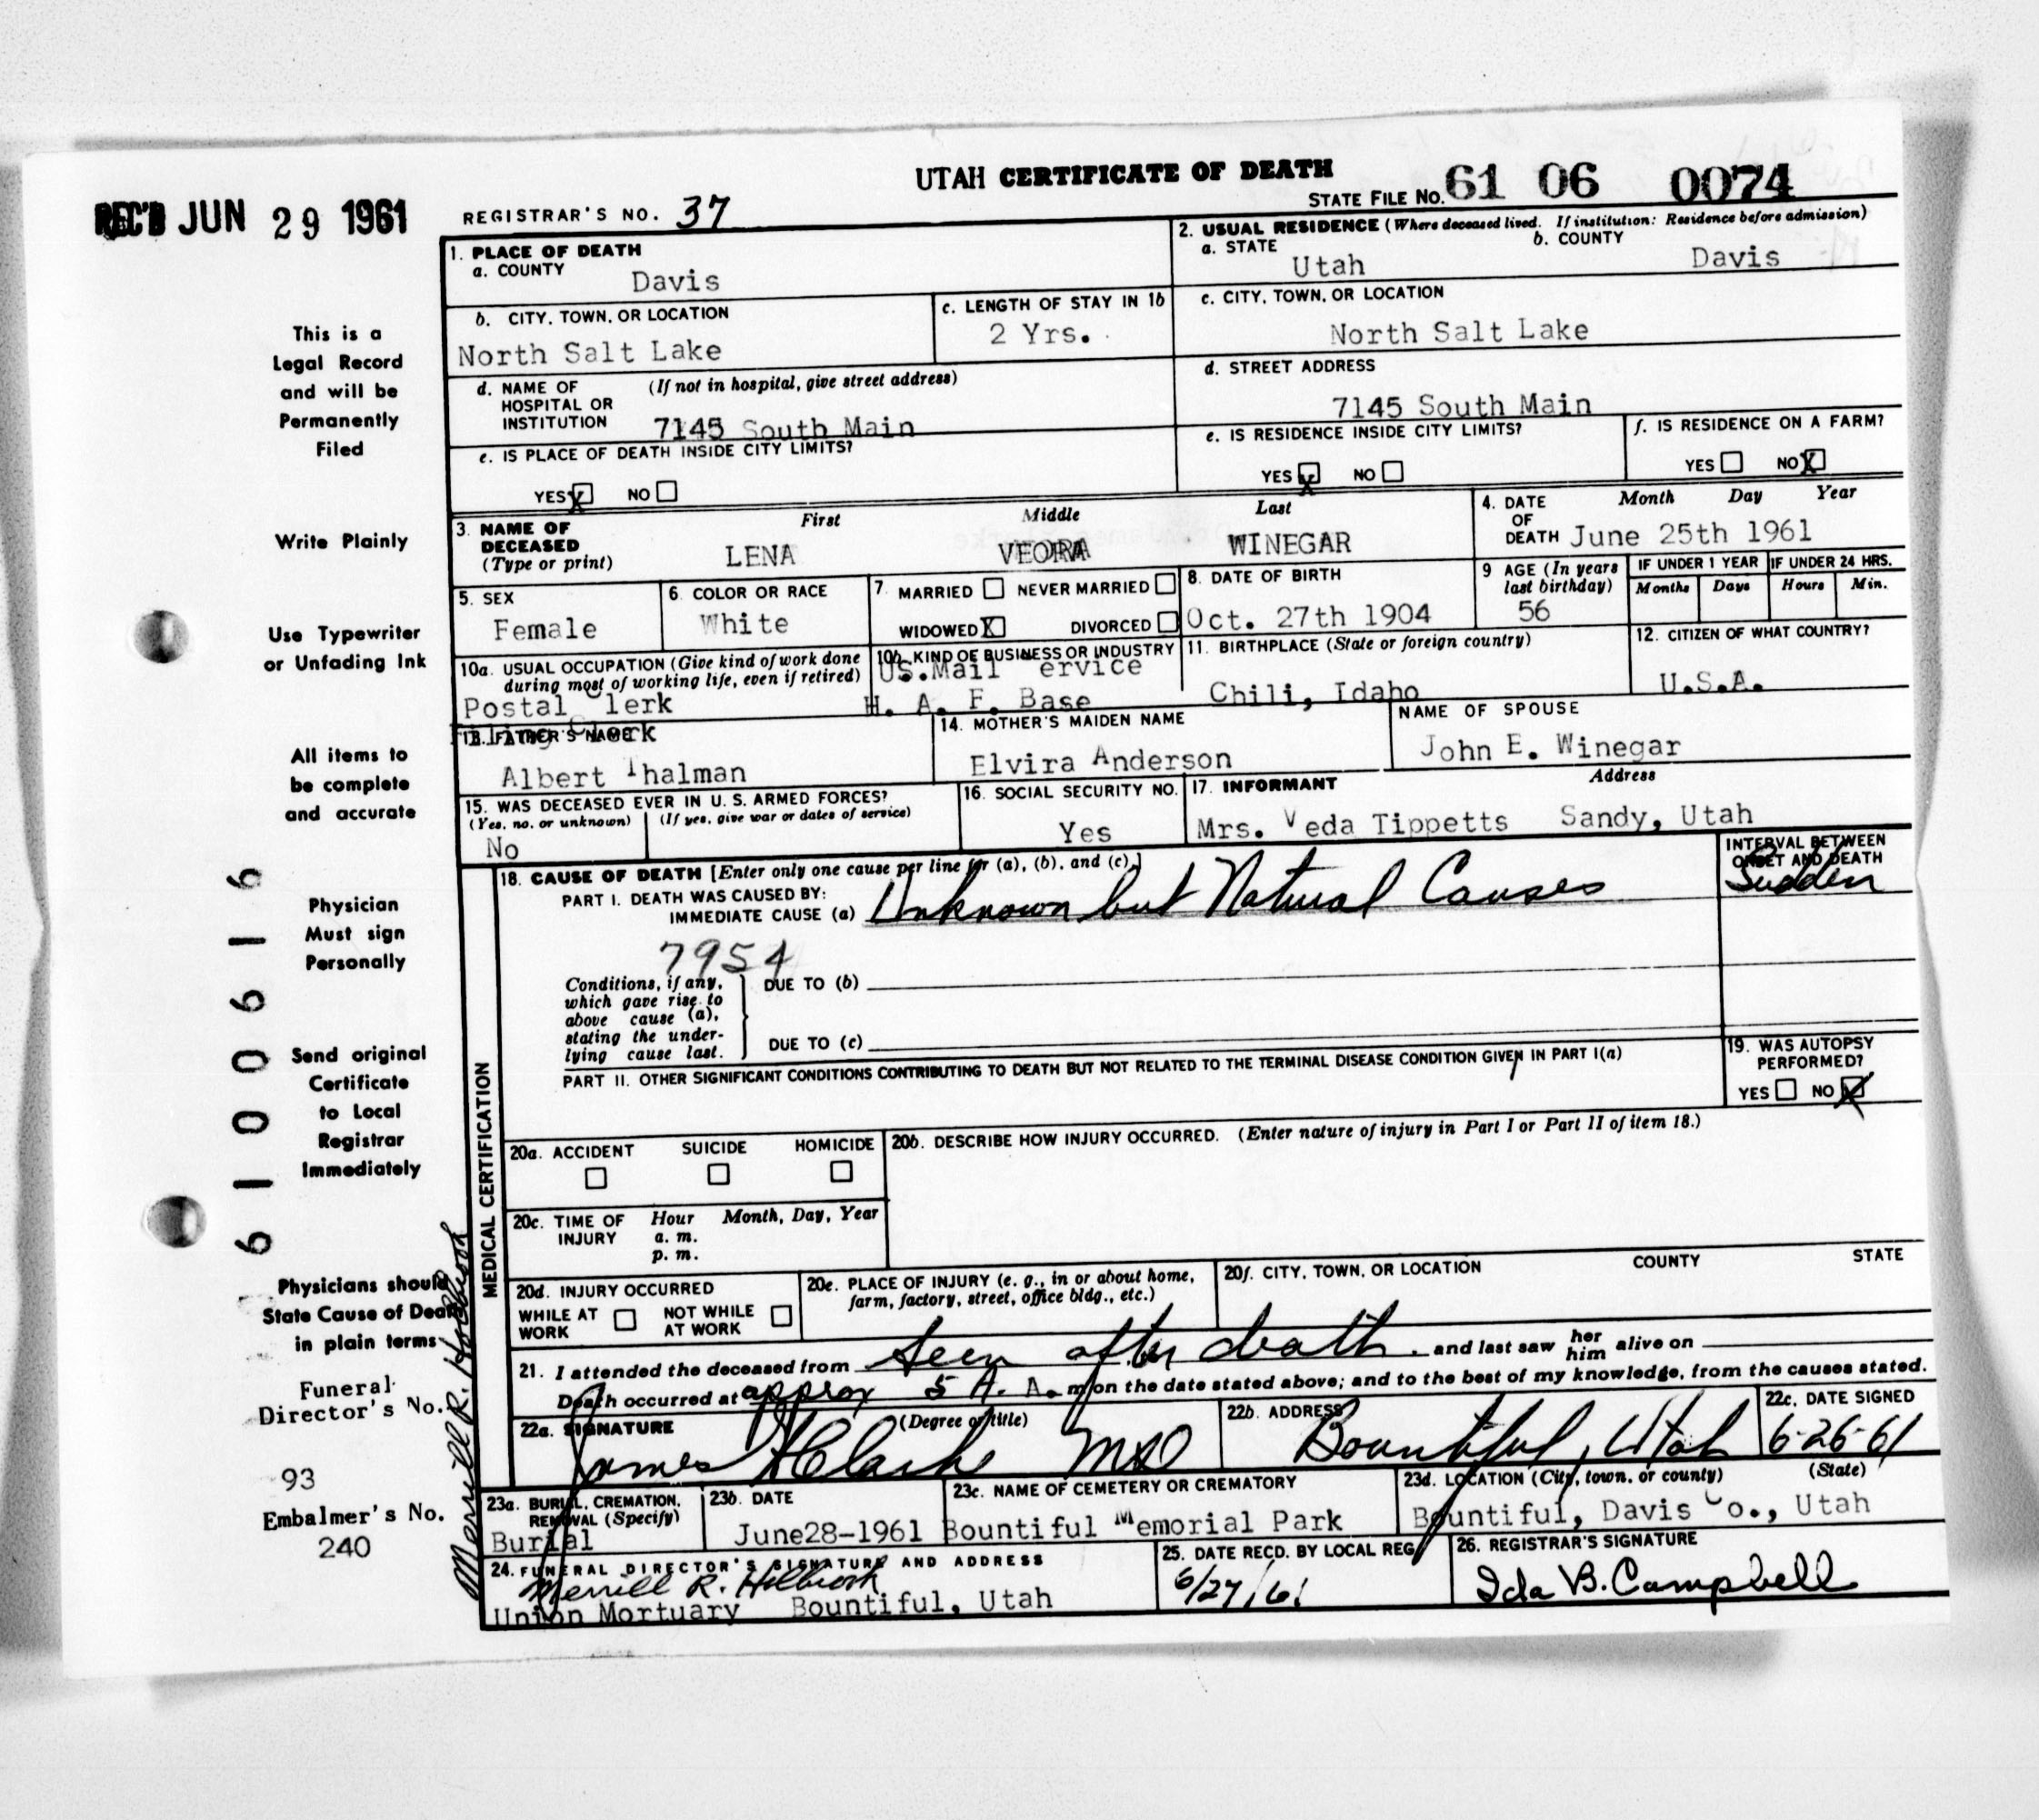 UTAH CERTIFICATE OF DEATH
REC'D JUN 29 1961
REGISTRAR'S NO. 37
STATE FILE NO. 61 06 0074
1. PLACE OF DEATH
a. COUNTY
Davis
2. USUAL RESIDENCE (Where deceased lived. If institution: Residence before admission)
a. STATE
Utah
b. COUNTY
Davis
b. CITY, TOWN, OR LOCATION
North Salt Lake
c. LENGTH OF STAY IN 1b
2 Yrs.
c. CITY, TOWN, OR LOCATION
North Salt Lake
d. NAME OF HOSPITAL OR INSTITUTION
(If not in hospital, give street address)
7145 South Main
d. STREET ADDRESS
7145 South Main
e. IS PLACE OF DEATH INSIDE CITY LIMITS?
YES X NO
e. IS RESIDENCE INSIDE CITY LIMITS?
YES X NO
f. IS RESIDENCE ON A FARM?
YES NO X
3. NAME OF DECEASED
(Type or print)
First Middle Last
LENA VEORA WINEGAR
4. DATE OF DEATH
Month Day Year
June 25th 1961
5. SEX
Female
6. COLOR OR RACE
White
7. MARRIED NEVER MARRIED
WIDOWED X DIVORCED
8. DATE OF BIRTH
Oct. 27th 1904
9 AGE (In years last birthday)
56
IF UNDER 1 YEAR
Months Days
IF UNDER 24 HRS.
Hours Min.
10a. USUAL OCCUPATION (Give kind of work done during most of working life, even if retired)
Postal Clerk
Filing Clerk
10b. KIND OF BUSINESS OR INDUSTRY
US.Mail ervice
H. A. F. Base
11. BIRTHPLACE (State or foreign country)
Chili, Idaho
12. CITIZEN OF WHAT COUNTRY?
U.S.A.
13. FATHER'S NAME
Albert Thalman
14. MOTHER'S MAIDEN NAME
Elvira Anderson
NAME OF SPOUSE
John E. Winegar
15. WAS DECEASED EVER IN U. S. ARMED FORCES?
(Yes, no, or unknown) (If yes, give war or dates of service)
No
16. SOCIAL SECURITY NO.
Yes
17. INFORMANT Address
Mrs. Veda Tippetts Sandy, Utah
18. CAUSE OF DEATH [Enter only one cause per line for (a), (b), and (c).]
PART I. DEATH WAS CAUSED BY:
IMMEDIATE CAUSE (a) Unknown but Natural Causes
INTERVAL BETWEEN ONSET AND DEATH
Sudden
7954
Conditions, if any, which gave rise to above cause (a), stating the underlying cause last.
DUE TO (b)
DUE TO (c)
PART II. OTHER SIGNIFICANT CONDITIONS CONTRIBUTING TO DEATH BUT NOT RELATED TO THE TERMINAL DISEASE CONDITION GIVEN IN PART I(a)
19. WAS AUTOPSY PERFORMED?
YES NO X
20a. ACCIDENT SUICIDE HOMICIDE
20b. DESCRIBE HOW INJURY OCCURRED. (Enter nature of injury in Part I or Part II of item 18.)
20c. TIME OF INJURY
Hour Month, Day, Year
a. m.
p. m.
20d. INJURY OCCURRED
WHILE AT WORK NOT WHILE AT WORK
20e. PLACE OF INJURY (e. g., in or about home, farm, factory, street, office bldg., etc.)
20f. CITY, TOWN, OR LOCATION COUNTY STATE
21. I attended the deceased from Seen after death. and last saw her him alive on
Death occurred at approx 5 A. m. on the date stated above; and to the best of my knowledge, from the causes stated.
22a. SIGNATURE (Degree or title)
James H Clarke MD
22b. ADDRESS
Bountiful, Utah
22c. DATE SIGNED
6-26-61
23a. BURIAL, CREMATION, REMOVAL (Specify)
Burial
23b. DATE
June28-1961
23c. NAME OF CEMETERY OR CREMATORY
Bountiful Memorial Park
23d. LOCATION (City, town, or county) (State)
Bountiful, Davis Co., Utah
24. FUNERAL DIRECTOR'S SIGNATURE AND ADDRESS
Merrill R. Holbrook
Union Mortuary Bountiful, Utah
25. DATE RECD. BY LOCAL REG.
6/27/61
26. REGISTRAR'S SIGNATURE
Ida B. Campbell
MEDICAL CERTIFICATION
This is a
Legal Record
and will be
Permanently
Filed
Write Plainly
Use Typewriter
or Unfading Ink
All items to
be complete
and accurate
Physician
Must sign
Personally
Send original
Certificate
to Local
Registrar
Immediately
Physicians should
State Cause of Death
in plain terms
Funeral
Director's No.
93
Embalmer's No.
240
Merrill R. Holbrook
6100616